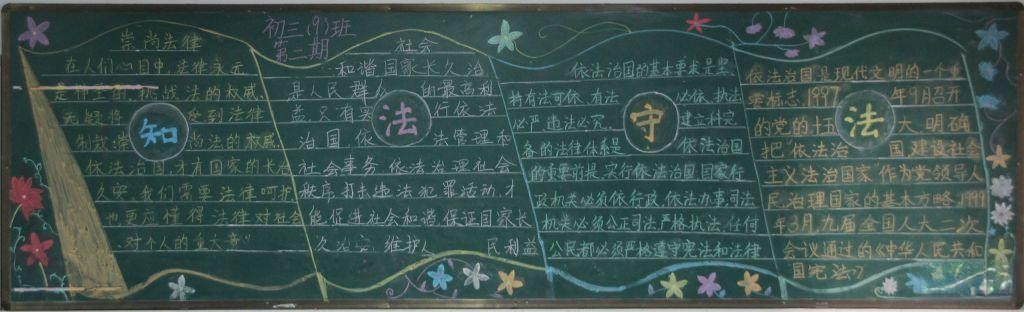 初三(9)班
第二期
知
法
守
法
崇尚法律
在人们心目中,法律永远
是神圣的,挑战法的权威,
无疑将 受到法律
制裁;崇 尚法的权威,
依法治国,才有国家的长治
久安,我们需要法律呵护,
也更应懂得法律对社会
、对个人的重大意义
社会
和谐国家长久治
是人民群众 的最高利
益,只有实 行依法
治国,依 法管理和
社会事务 依法治理社会
秩序,打击违法犯罪活动,才
能促进社会和谐,保证国家长
久治安,维护人 民利益
依法治国的基本要求是坚
持有法可依,有法 必依,执法
必严,违法必究, 建立科完
备的法律体系是 依法治国
的重要前提,实行依法治国,国家行
政机关必须依行政,依法办事司法
机关必须公正司法,严格执法,任何
公民都必须严格遵守宪法和法律
依法治国是现代文明的一个重
要标志,1997 年9月召开
的党的十五 大,明确
把"依法治 国,建设社会
主义法治国家"作为党领导人
民治理国家的基本方略,1999
年3月,九届全国人大二次
会议通过的《中华人民共和
国宪法》